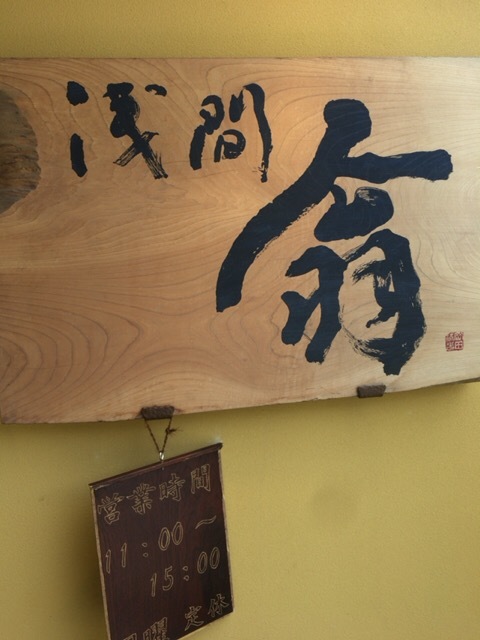 浅間 翁
営業時間
11:00～
15:00
曜 定休